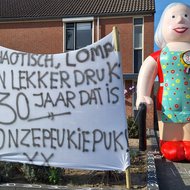 HAOTISCH, LOMP
N LEKKER DRUK
30 JAAR DAT IS
ONZE PEUKIE PUK!
XX